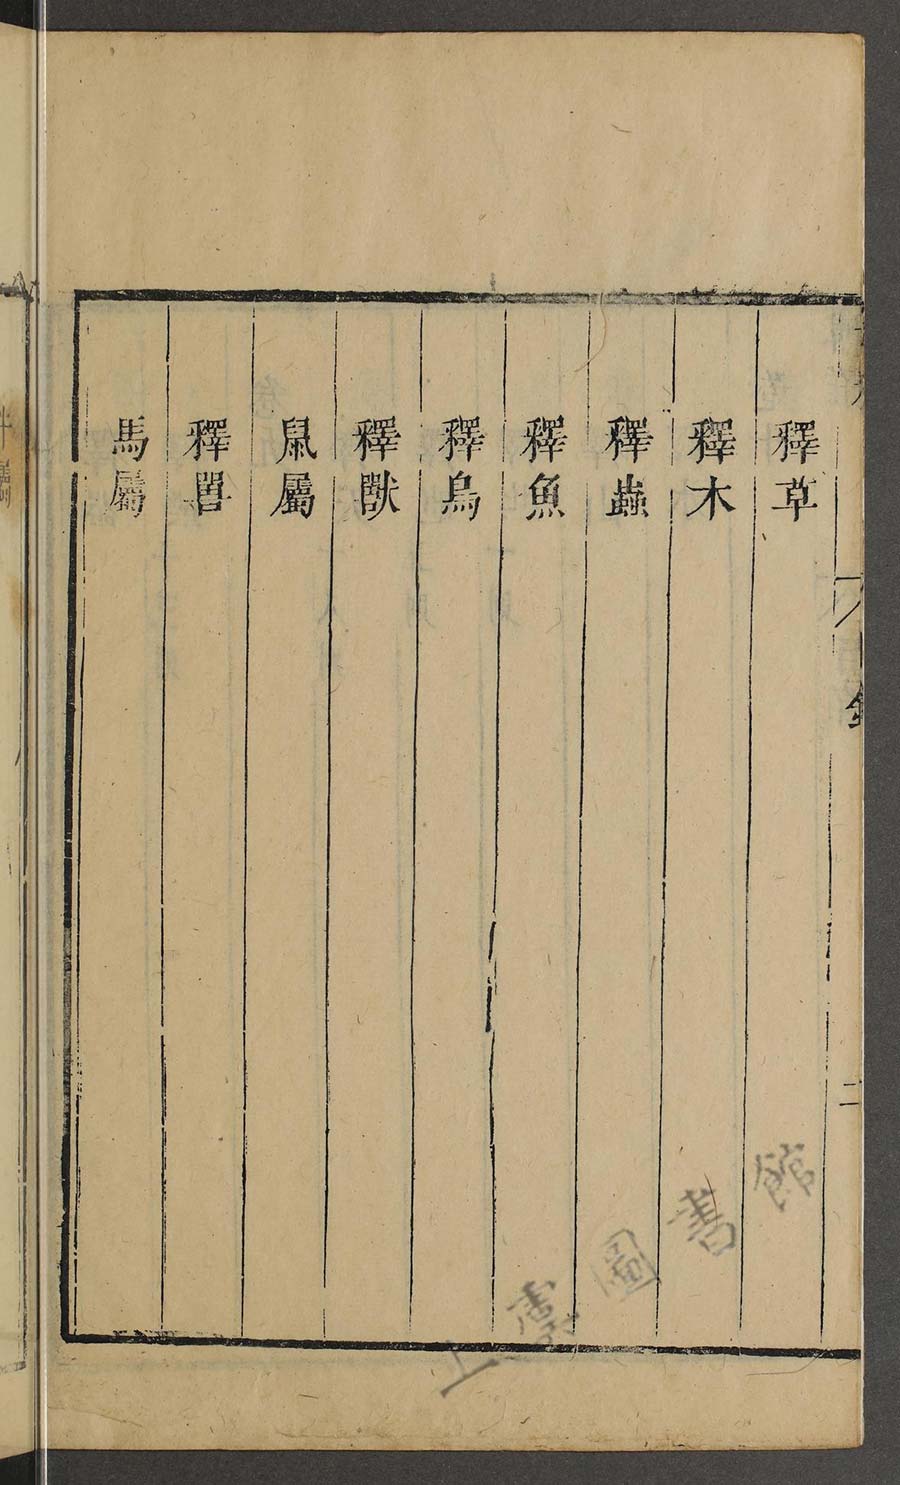 釋草
釋木
釋蟲
釋魚
釋鳥
釋獸
鼠屬
釋嘼
馬屬
二
上虞圖書館